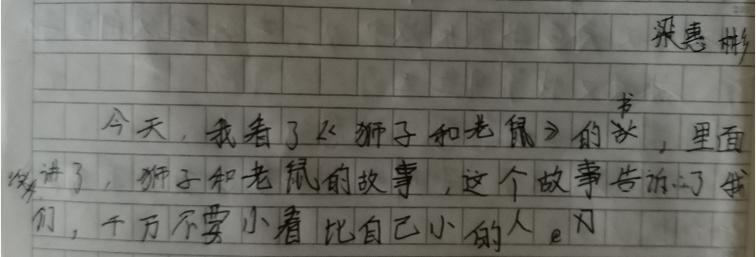 梁惠彬
今天，我看了《狮子和老鼠》的书，里面
讲了，狮子和老鼠的故事，这个故事告诉了我
们，千万不要小看比自己小的人。